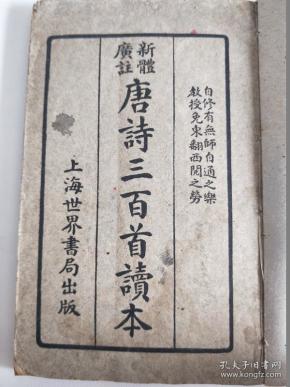 自修有無師自通之樂
教授免東翻西閱之勞
新體
廣註
唐詩三百首讀本
上海世界書局出版
孔夫子旧书网